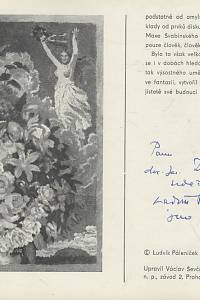 podstatně od omylu
klady od prvků disku
Maxe Švabinského
pouze člověk, člověk
Byla to však velko
se i v dobách hledá
tak výsostného umě
ve fantazii, vytvořil
jistotě své budoucí
Panu
© Ludvík Páleníček
Upravil Václav Ševč
n. p., závod 2, Praha